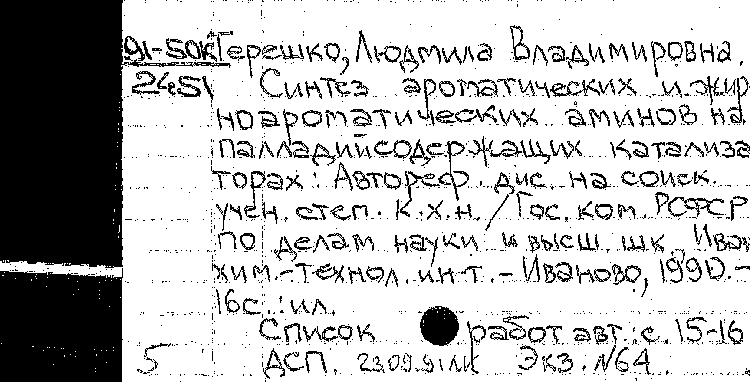 91-50к Терешко, Людмила Владимировна.
2451 Синтез ароматических и жир
ноароматических аминов на
палладийсодержащих катализа
торах: Автореф. дис. на соиск.
учен. степ. к.х.н. / Гос. ком. РСФСР
по делам науки и высш. шк. Иван
хим.-технол. ин-т. - Иваново, 1990. -
16с.: ил.
Список работ авт.: с. 15-16
5 ДСП. 23.09.91 ЛК Экз. N64.